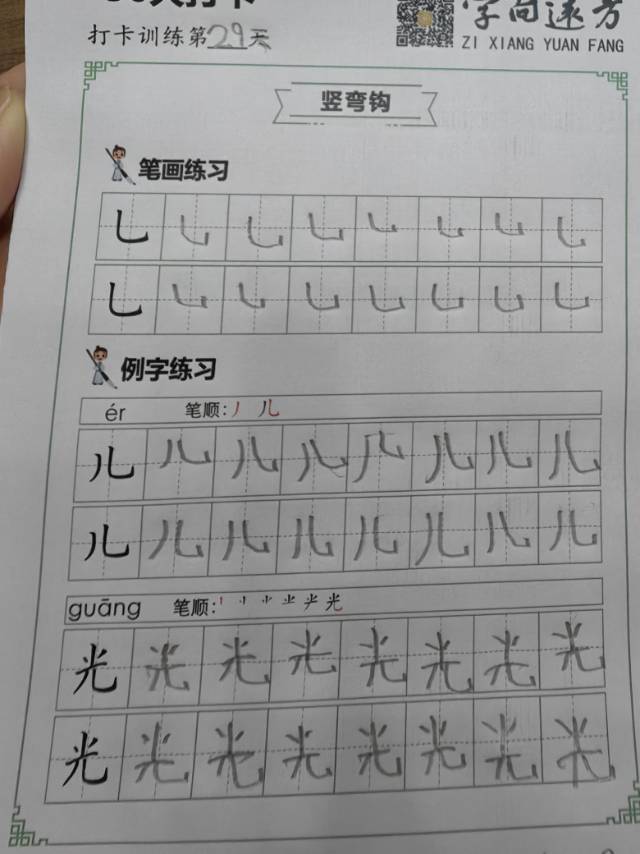 打卡训练第29天
字向远方
ZI XIANG YUAN FANG
竖弯钩
笔画练习
乚 乚 乚 乚 乚 乚 乚 乚
乚 乚 乚 乚 乚 乚 乚 乚
例字练习
ér 笔顺: 丿 儿
儿 儿 儿 儿 儿 儿 儿 儿
儿 儿 儿 儿 儿 儿 儿 儿
guāng 笔顺:
光 光 光 光 光 光 光 光
光 光 光 光 光 光 光 光